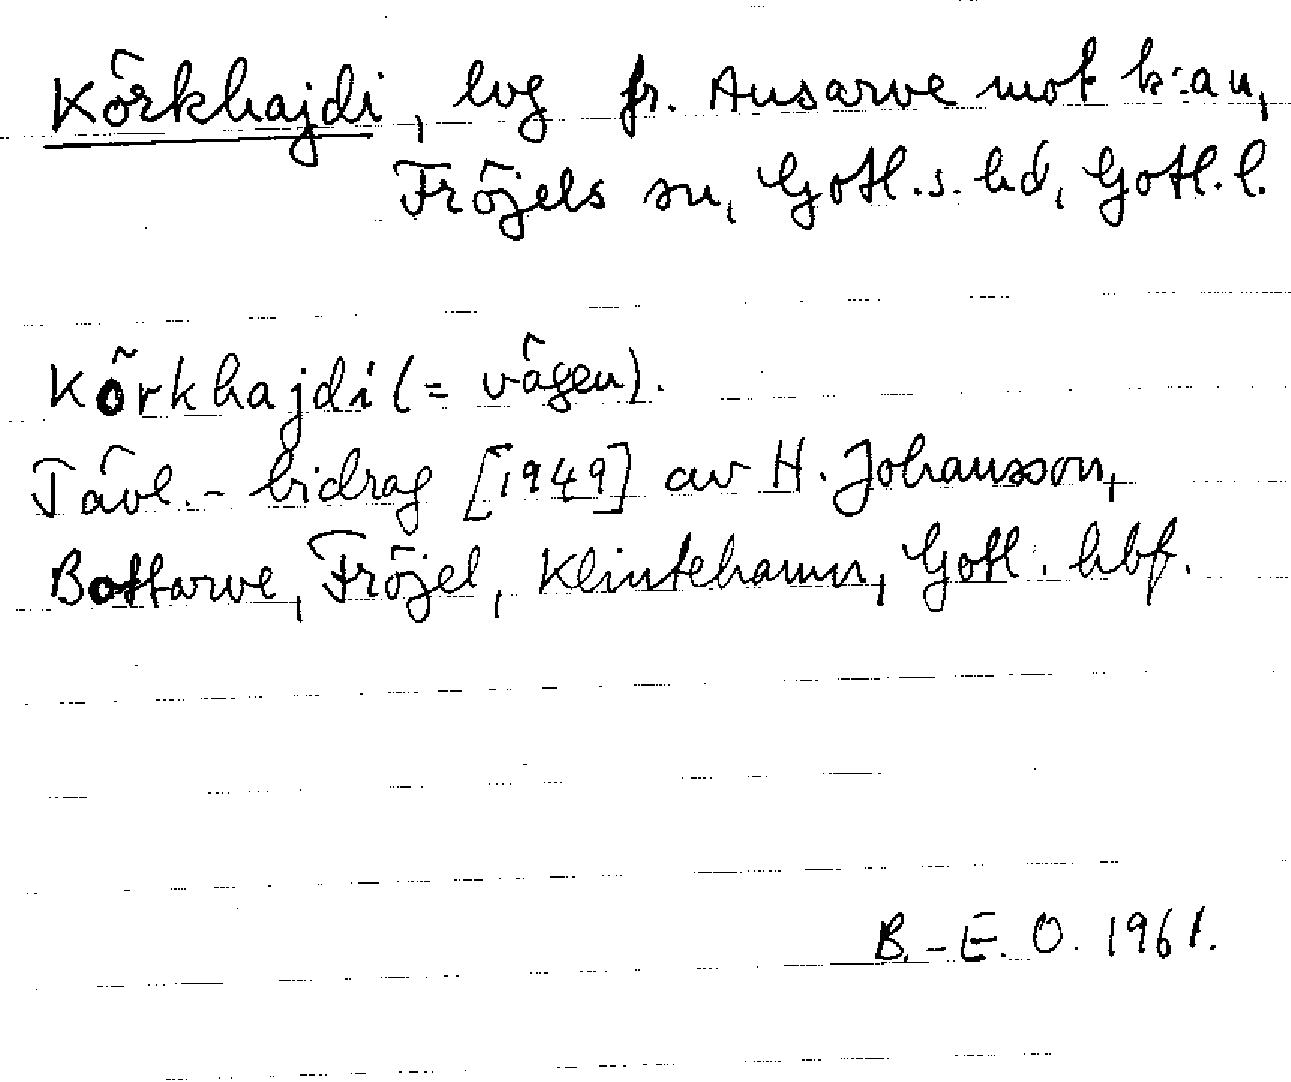 Körkhajdi, lvg fr. Ansarve mot k:an,
Fröjels sn, Gotl.s. hd, Gotl. l.
Körkhajdi (= vägen).
Tävl.- bidrag [1949] av H. Johansson,
Bottarve, Fröjel, Klintehamn, Gotl. hbf.
B.-E. O. 1961.